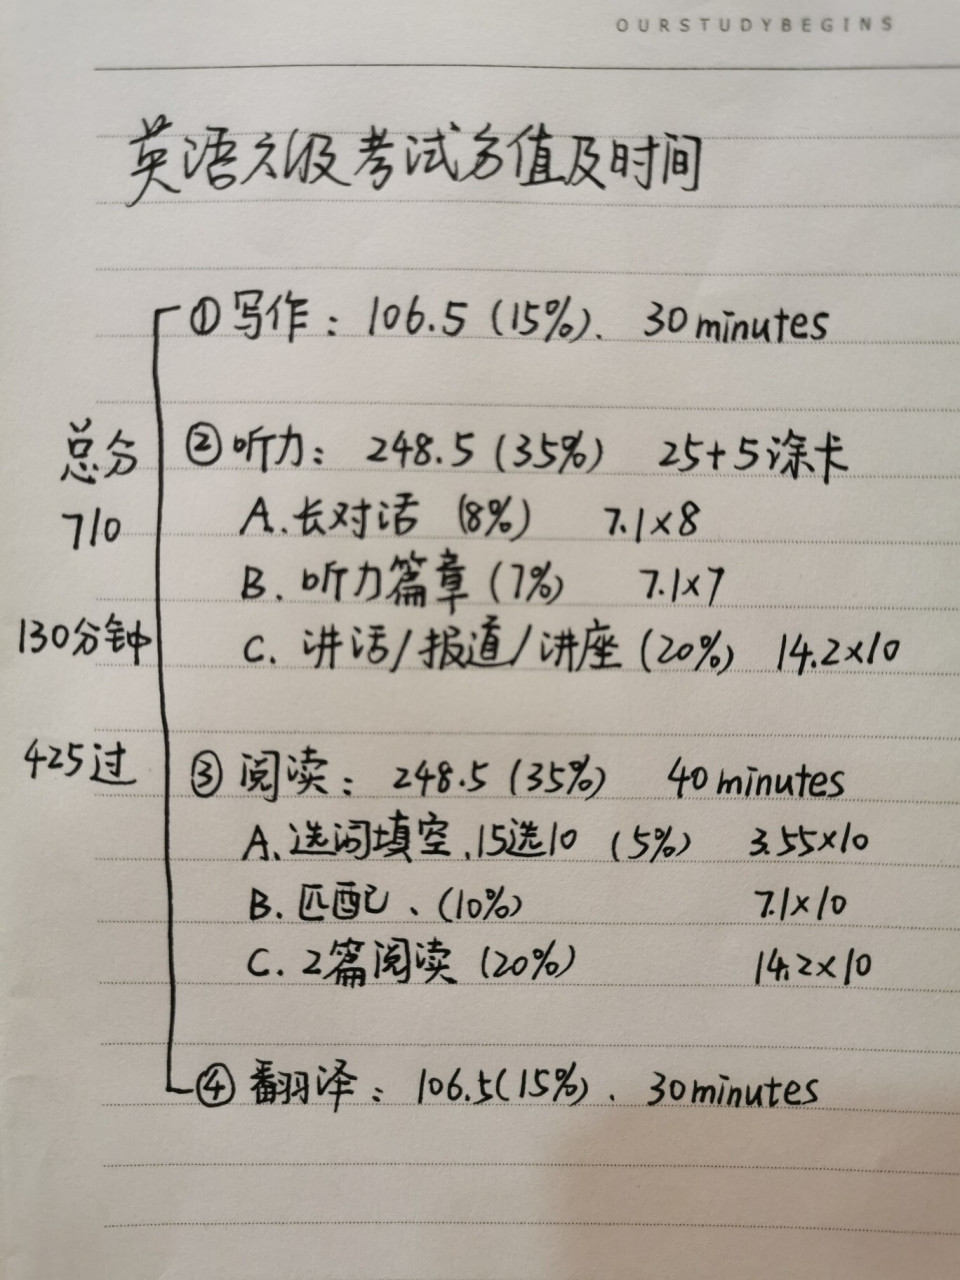 OURSTUDYBEGINS
英语六级考试分值及时间
①写作：106.5（15%）. 30minutes
总分
710
130分钟
425过
②听力：248.5（35%） 25+5涂卡
A.长对话（8%） 7.1×8
B.听力篇章（7%） 7.1×7
C.讲话/报道/讲座（20%） 14.2×10
③阅读：248.5（35%） 40minutes
A、选词填空、15选10（5%） 3.55×10
B.匹配、（10%） 7.1×10
C.2篇阅读（20%） 14.2×10
④翻译：106.5（15%）. 30minutes